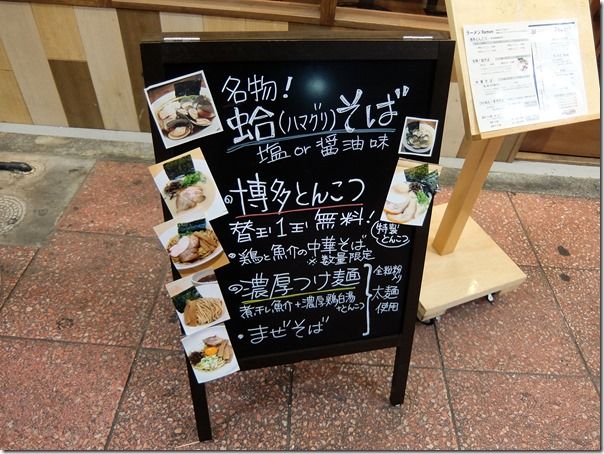 名物!
蛤(ハマグリ)そば
塩or醤油味
・博多とんこつ
替玉1玉無料!
特製とんこつ
・鶏と魚介の中華そば
※数量限定
・濃厚つけ麺
煮干し魚介+濃厚鶏白湯+とんこつ
全粒粉入り
太麺使用
・まぜそば
ラーメン Ramen